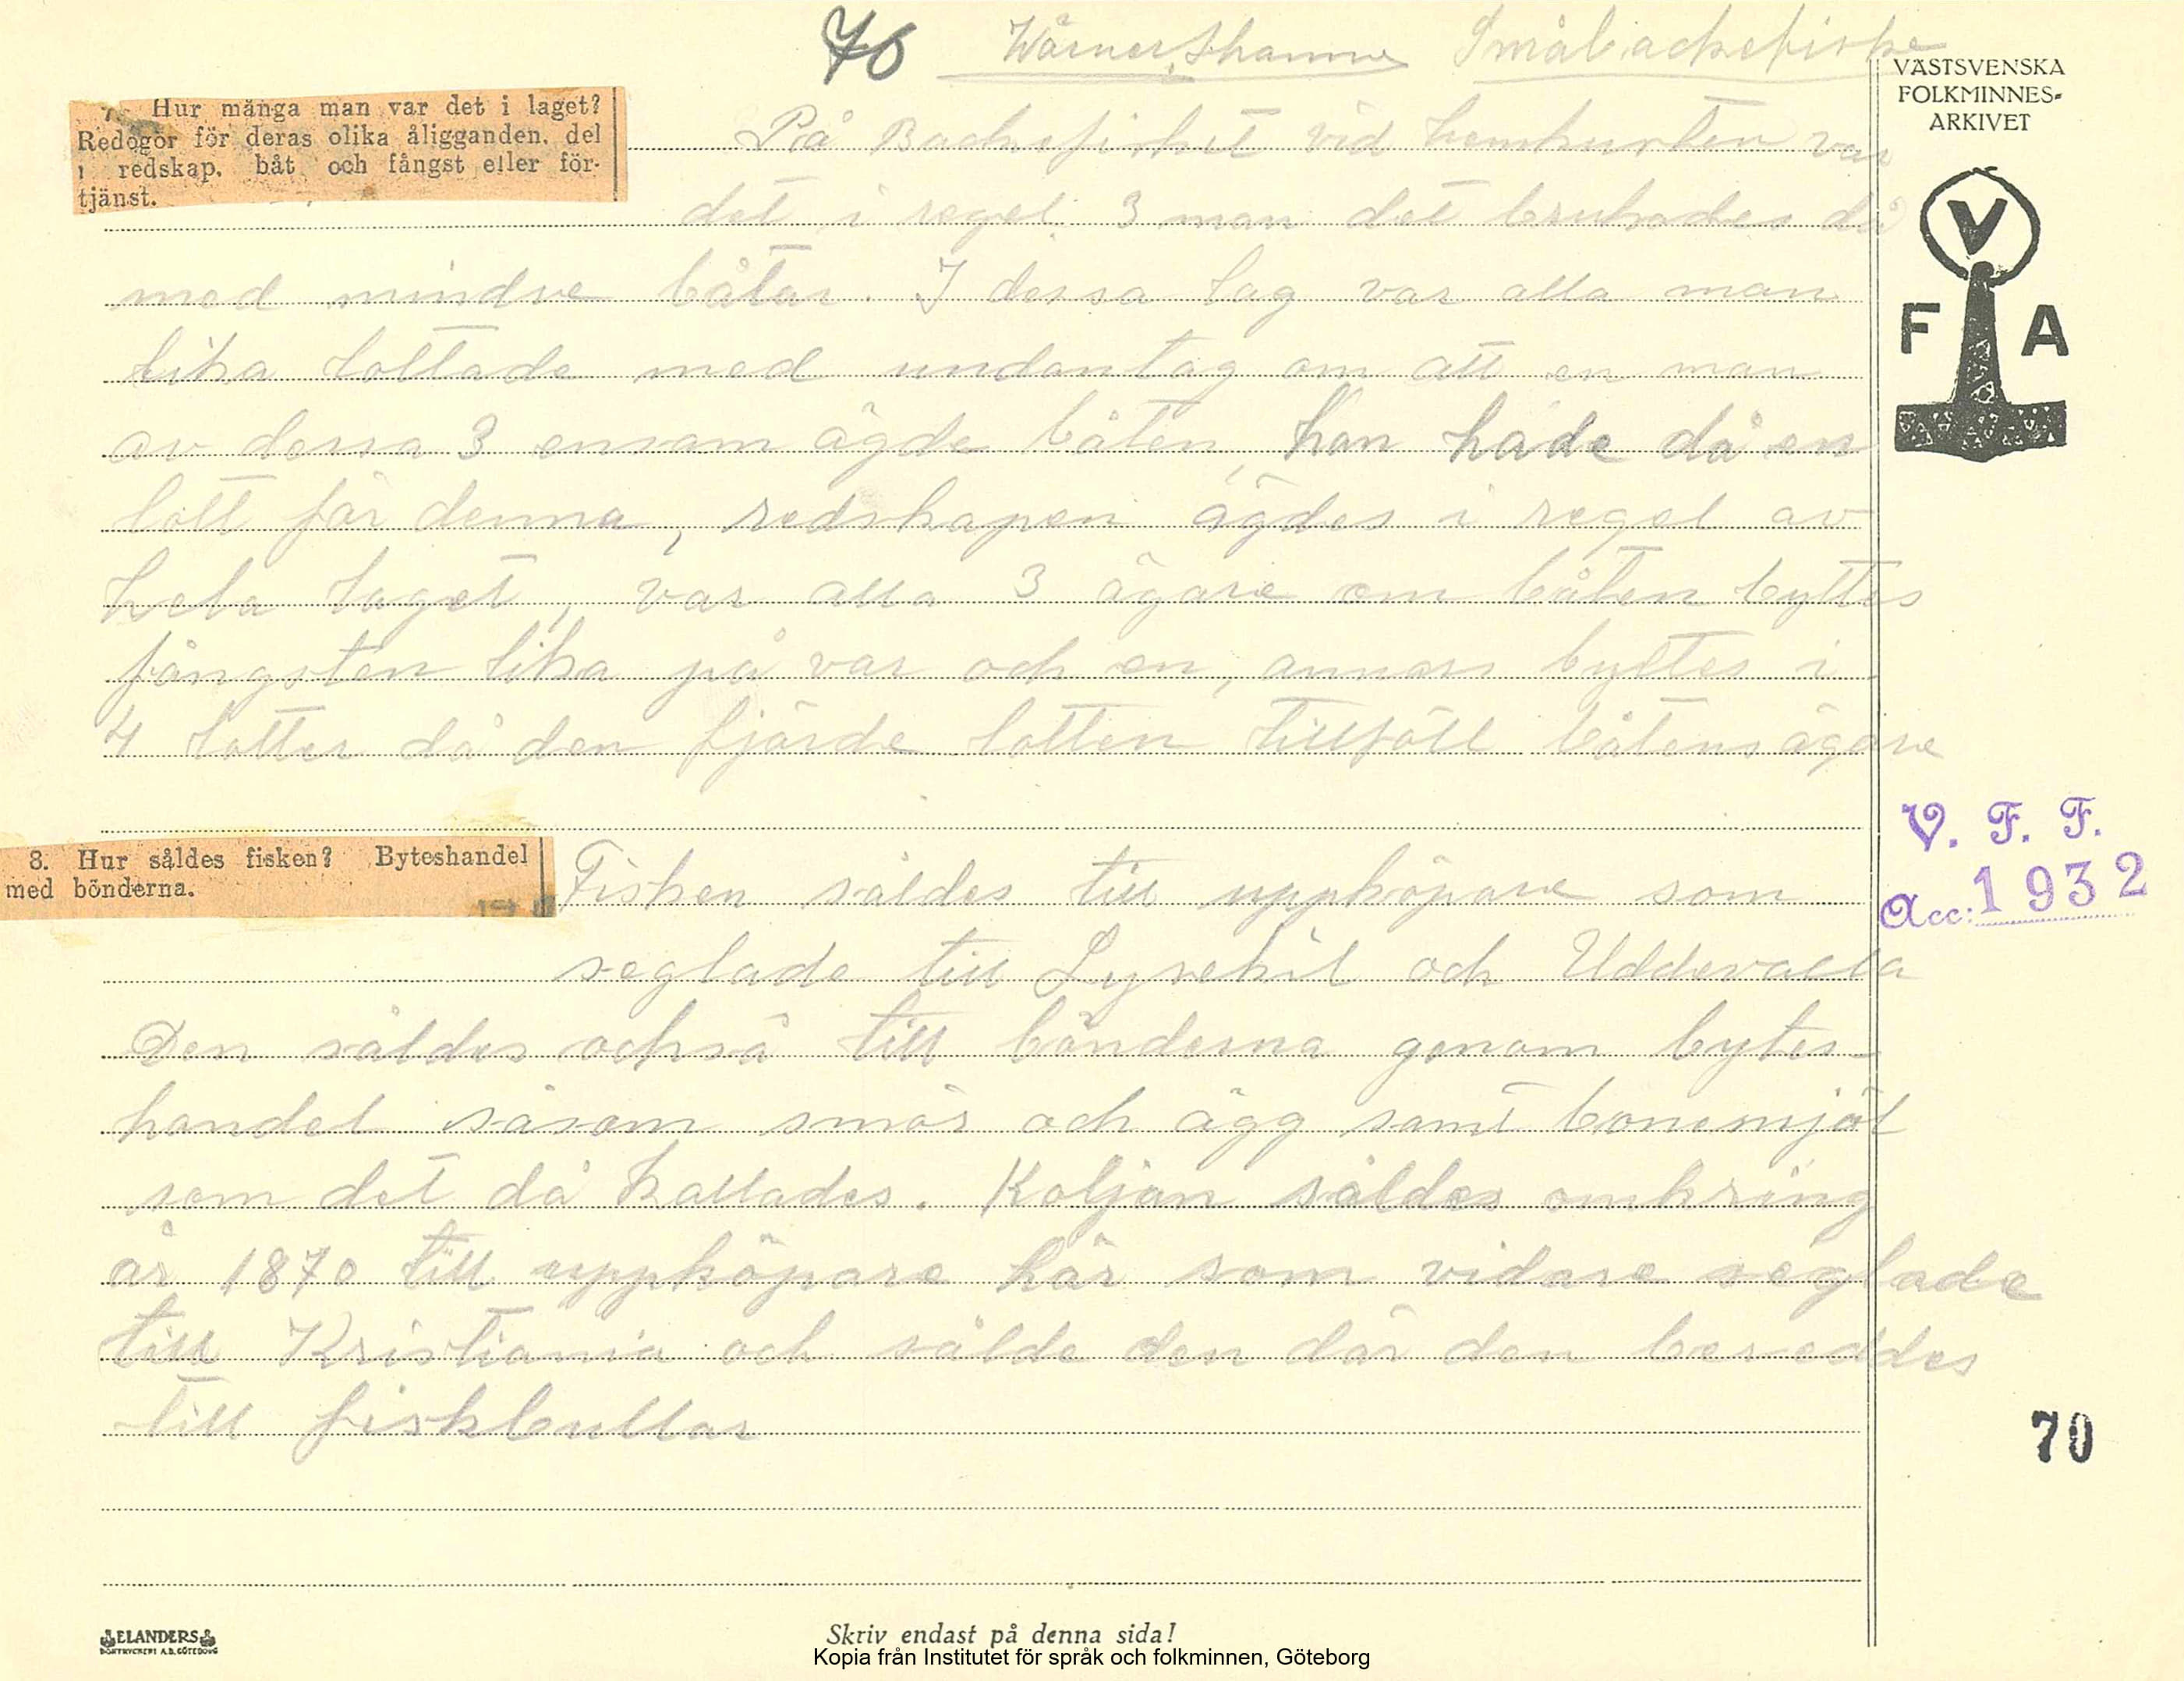 70 Wärnershamn Småbackefiske
VÄSTSVENSKA
FOLKMINNES-
ARKIVET
V
F A
7. Hur många man var det i laget?
Redogör för deras olika åligganden, del
i redskap, båt och fångst eller för-
tjänst.
På Backefisket vid hemkusten var
det i regel 3 man det brukades då
med mindre båtar. I dessa lag var alla man
lika lottade med undantag om att en man
av dessa 3 ensam ägde båten, han hade då en
lott för denna, redskapen ägdes i regel av
hela laget, var alla 3 ägare om båten byttes
fångsten lika på var och en, annars byttes i
4 lotter då den fjärde lotten tillföll båtens ägare
V. F. F.
Acc: 1932
8. Hur såldes fisken? Byteshandel
med bönderna.
Fisken såldes till uppköpare som
seglade till Lysekil och Uddevalla
Den såldes också till bönderna genom bytes-
handel såsom smör och ägg samt bonemjöl
som det då kallades. Koljan såldes omkring
år 1870 till uppköpare här som vidare seglade
till Kristiania och sålde den där den bereddes
till fiskbullar
70
ELANDERS
BOKTRYCKERI A.B. GÖTEBORG
Skriv endast på denna sida!
Kopia från Institutet för språk och folkminnen, Göteborg